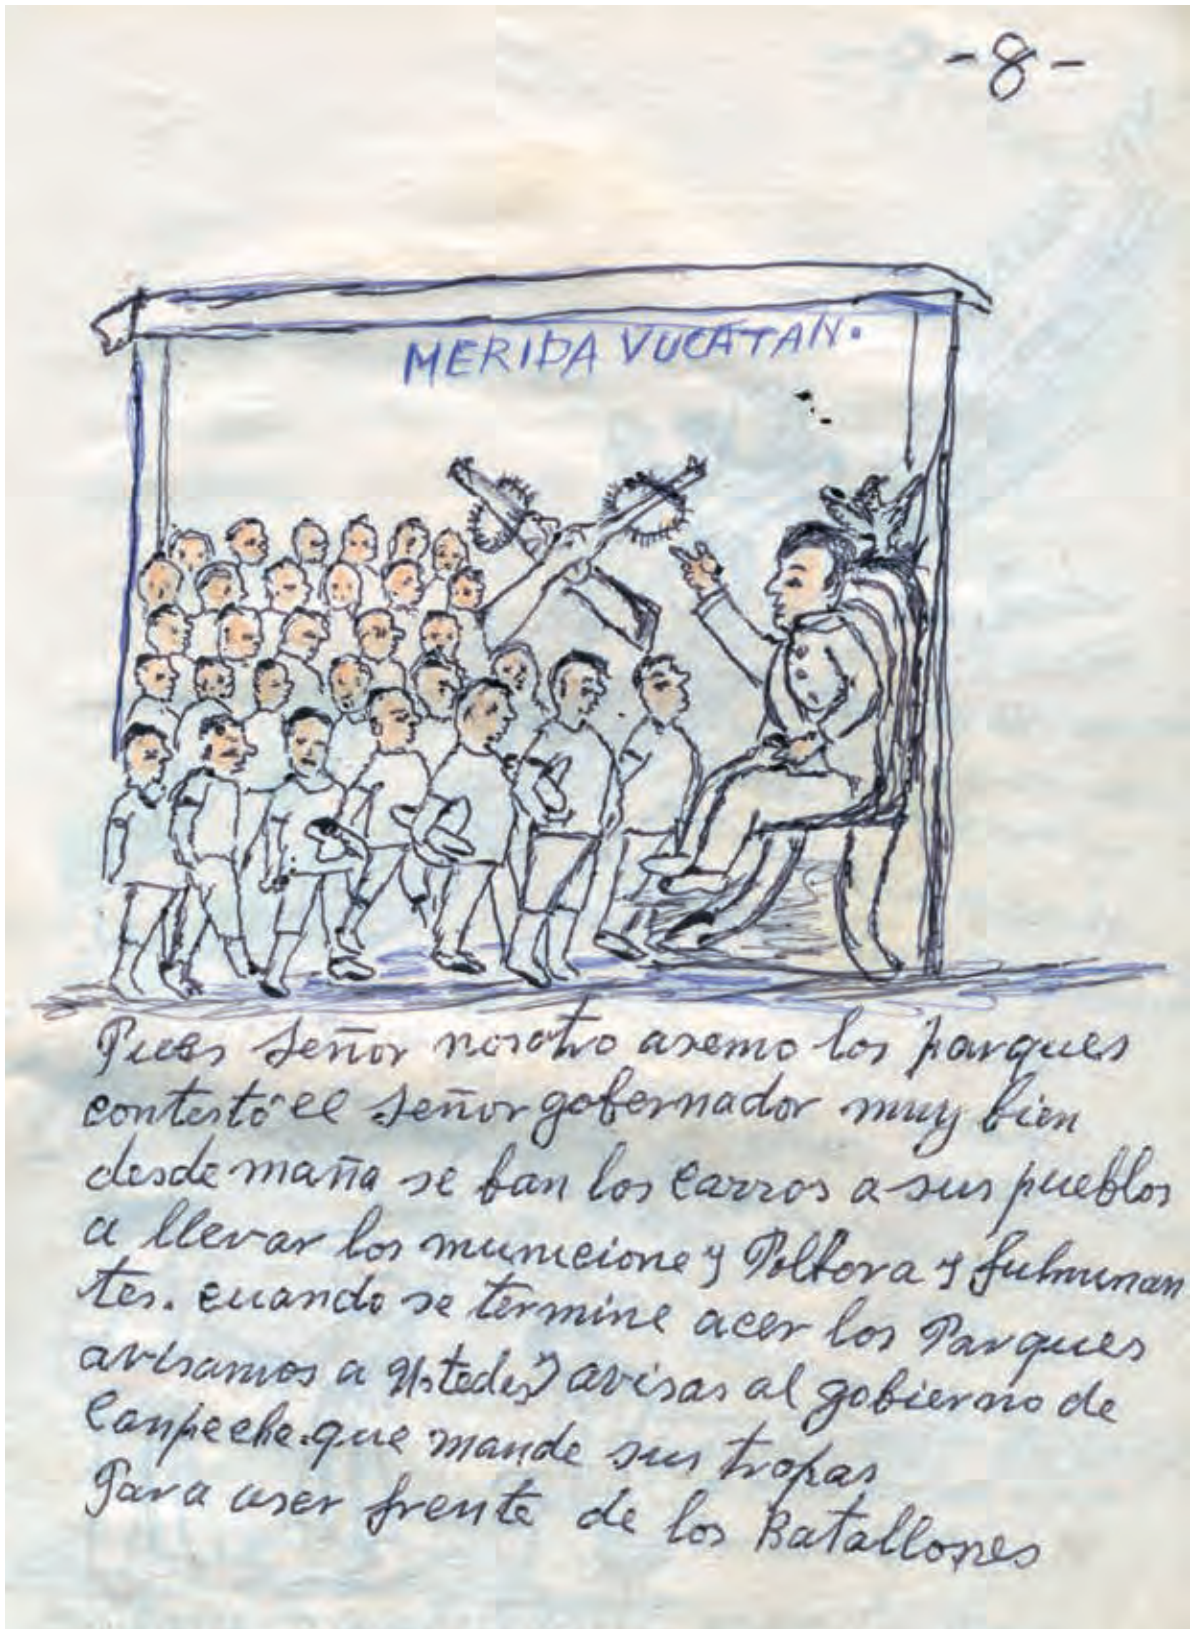 -8-
MERIDA YUCATAN.
Pues señor nosotro asemo los parques
contestó el señor gobernador muy bien
desde maña se ban los carros a sus pueblos
a llevar los municione y Polbora y fulminan
tes. cuando se termine acer los Parques
avisamos a Ustedes y avisas al gobierno de
Canpeche. que mande sus tropas
Para aser frente de los Batallones